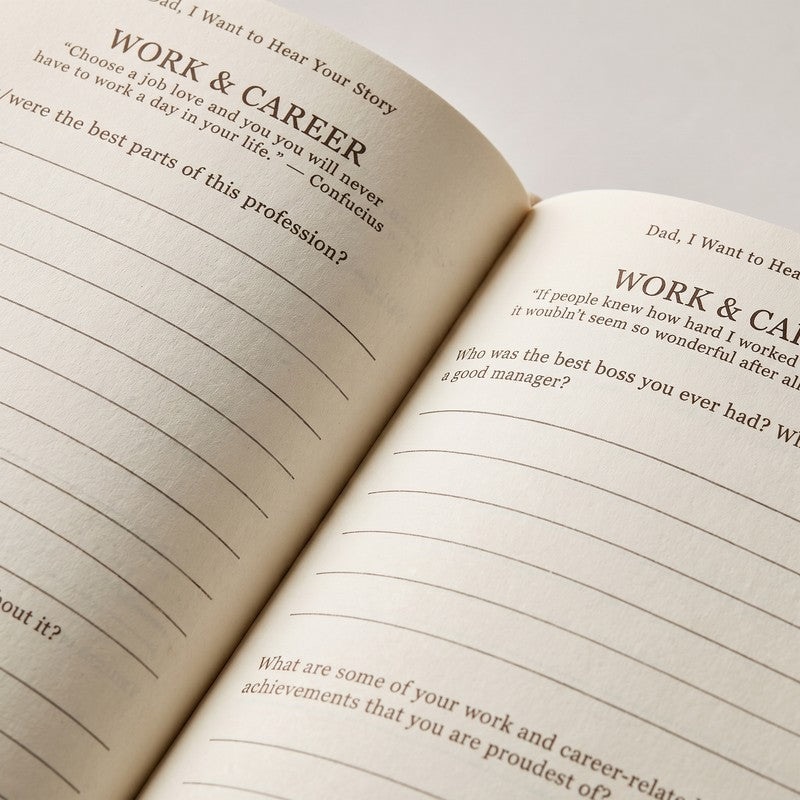 Dad, I Want to Hear Your Story
WORK & CAREER
“Choose a job love and you you will never
have to work a day in your life.” — Confucius
/were the best parts of this profession?
out it?
Dad, I Want to Hea
WORK & CA
“If people knew how hard I worked
it woubln't seem so wonderful after all
Who was the best boss you ever had? Wh
a good manager?
What are some of your work and career-relate
achievements that you are proudest of?